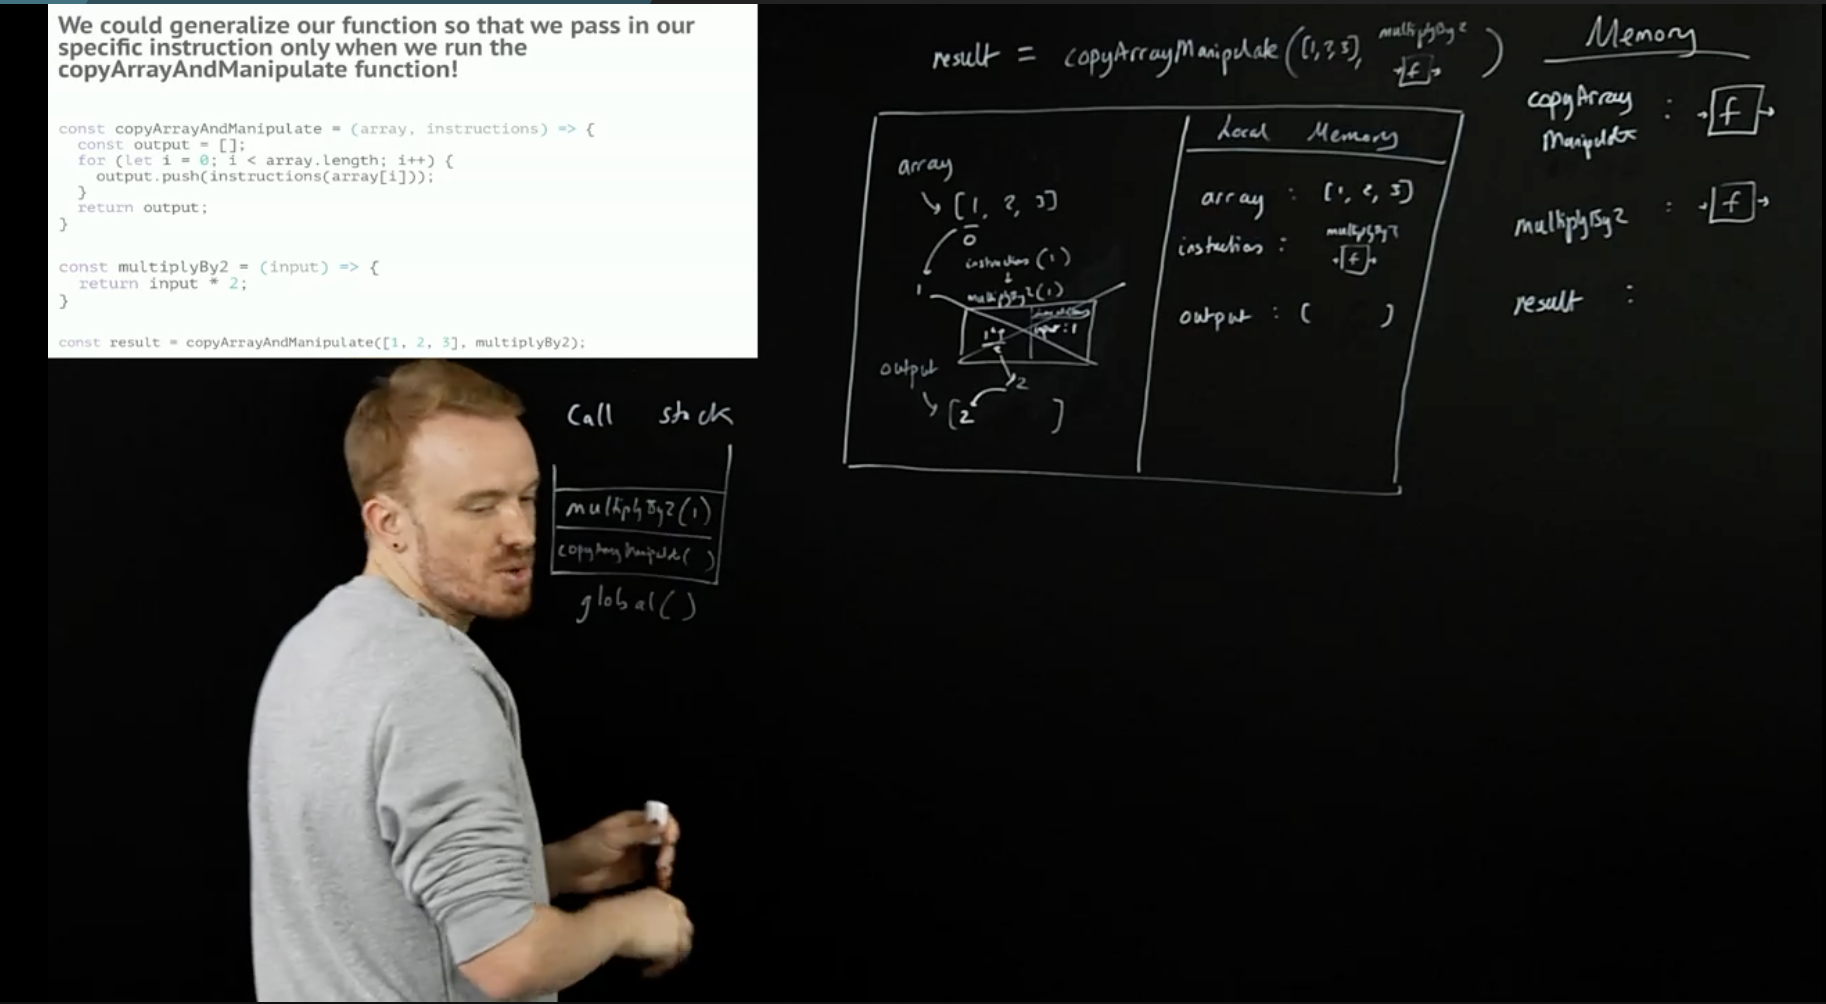 We could generalize our function so that we pass in our
specific instruction only when we run the
copyArrayAndManipulate function!
const copyArrayAndManipulate = (array, instructions) => {
const output = [];
for (let i = 0; i < array.length; i++) {
output.push(instructions(array[i]));
}
return output;
}
const multiplyBy2 = (input) => {
return input * 2;
}
const result = copyArrayAndManipulate([1, 2, 3], multiplyBy2);
result = copyArrayManipulate([1,2,3], multiplyBy2
f )
Local Memory
array
[1, 2, 3]
0
instructions (1)
multiplyBy2(1)
input : 1
1
2
output
[2 ]
array : [1, 2, 3]
multiplyBy2
f
output : [ ]
Memory
copyArray : f
multiplyBy2 : f
result :
Call stack
multiplyBy2(1)
copyArrayManipulate( )
global( )